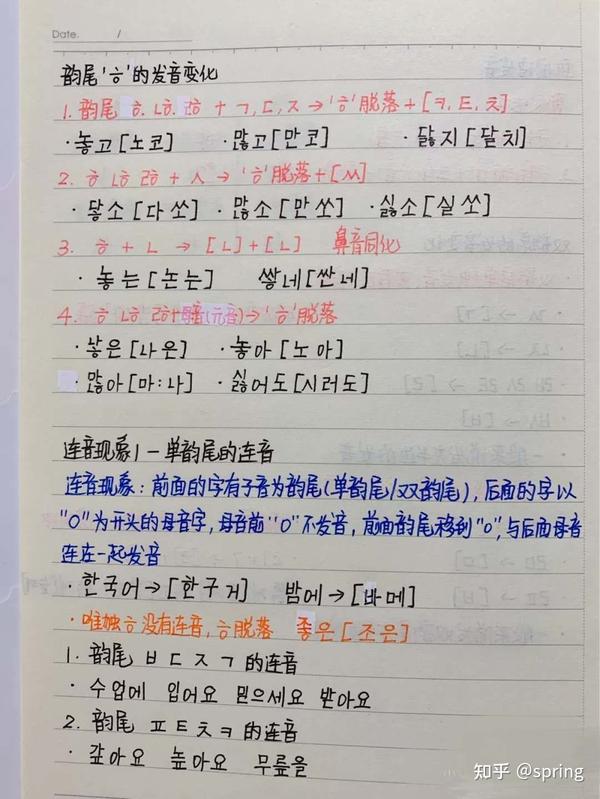 Date. /
韵尾'ㅎ'的发音变化
1. 韵尾 ㅎ. ㄶ. ㅀ + ㄱ, ㄷ, ㅈ → 'ㅎ'脱落 + [ㅋ, ㅌ, ㅊ]
· 놓고 [노코] · 많고 [만코] · 닳지 [달치]
2. ㅎ ㄶ ㅀ + ㅅ → 'ㅎ'脱落 + [ㅆ]
· 닿소 [다쏘] · 많소 [만쏘] · 싫소 [실쏘]
3. ㅎ + ㄴ → [ㄴ] + [ㄴ] 鼻音同化
· 놓는 [논는] 쌓네 [싼네]
4. ㅎ ㄶ ㅀ + 母音(元音) → 'ㅎ'脱落
· 낳은 [나은] · 놓아 [노아]
· 많아 [마:나] · 싫어도 [시러도]
连音现象1 - 单韵尾的连音
连音现象: 前面的字有子音为韵尾(单韵尾/双韵尾), 后面的字以
"ㅇ"为开头的母音字, 母音前"ㅇ"不发音, 前面韵尾移到"ㅇ", 与后面母音
连在一起发音
· 한국어 → [한구거] 밤에 → [바메]
· 唯独ㅎ没有连音, ㅎ脱落 좋은 [조은]
1. 韵尾 ㅂ ㄷ ㅈ ㄱ 的连音
· 수업에 입어요 믿으세요 받아요
2. 韵尾 ㅍ ㅌ ㅊ ㅋ 的连音
· 갚아요 높아요 무릎을
知乎 @spring